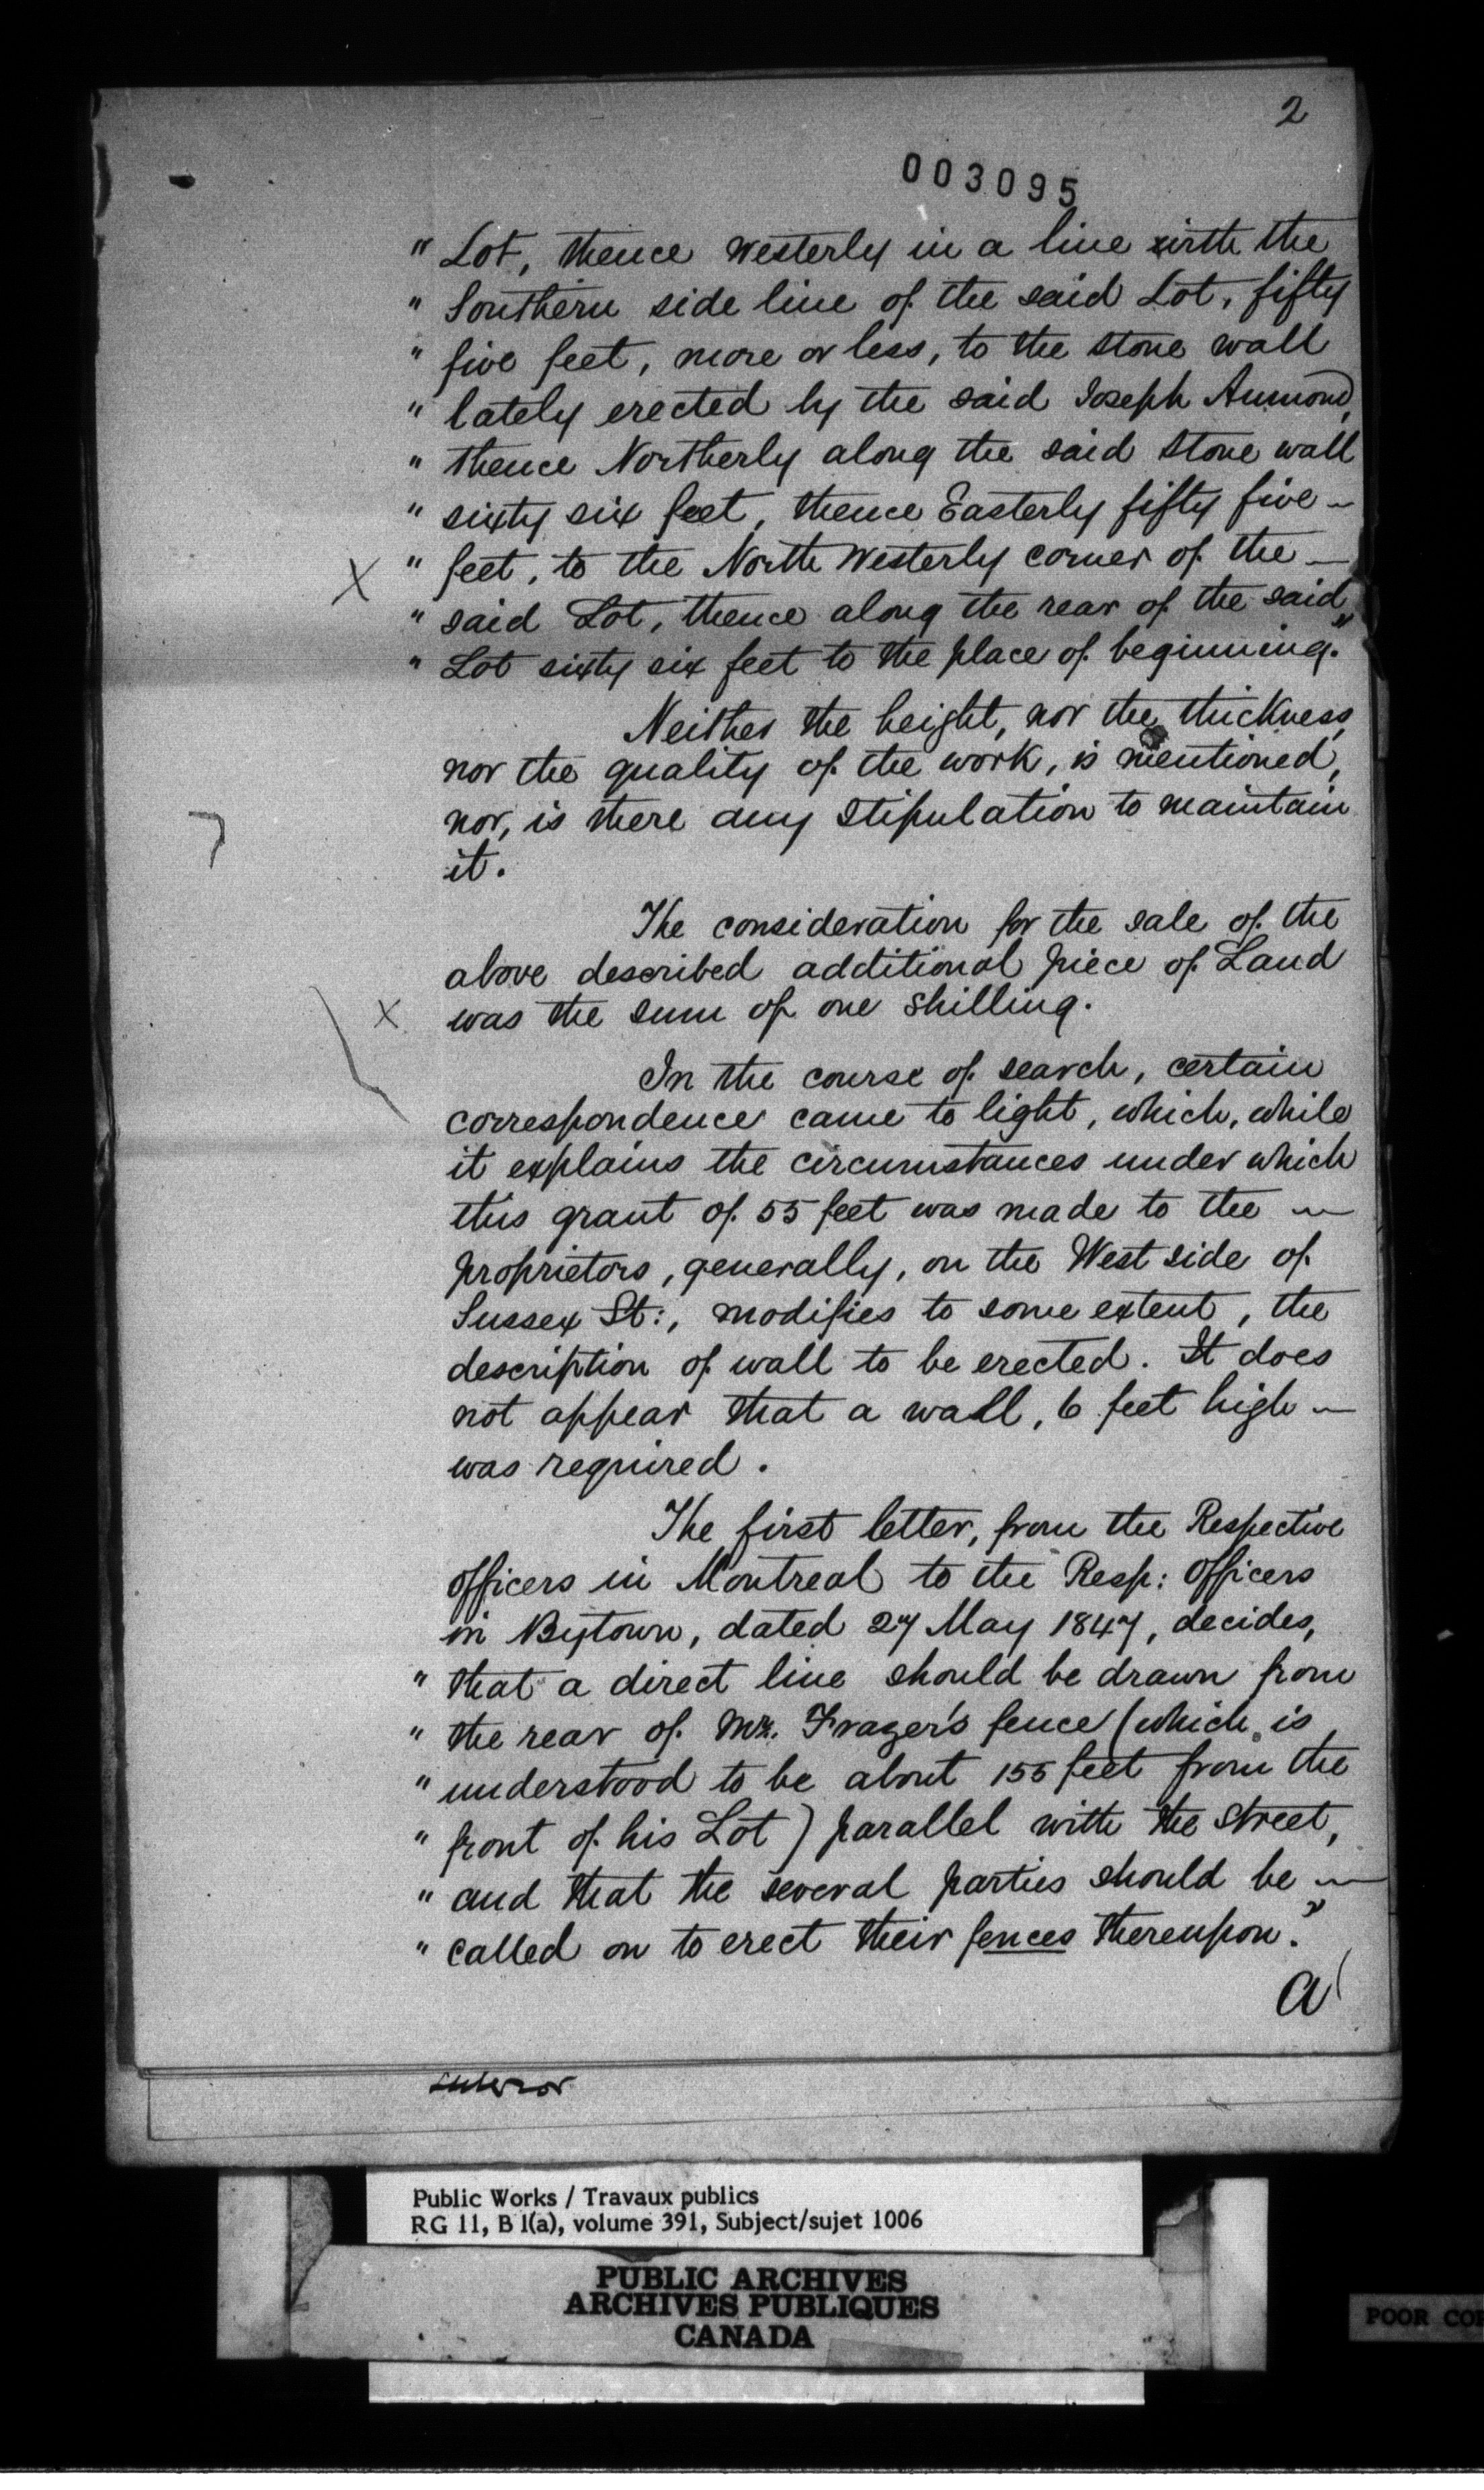 2
003095
" Lot, thence Westerly in a line with the
" Southern side line of the said Lot, fifty
" five feet, more or less, to the stone wall
" lately erected by the said Joseph Aumond,
" thence Northerly along the said stone wall
" sixty six feet, thence Easterly fifty five —
X " feet, to the North Westerly corner of the —
" said Lot, thence along the rear of the said
" Lot sixty six feet to the place of beginning."
Neither the height, nor the thickness,
nor the quality of the work, is mentioned,
nor, is there any stipulation to maintain
it.
The consideration for the sale of the
above described additional piece of Land
X was the sum of one shilling.
In the course of search, certain
correspondence came to light, which, while
it explains the circumstances under which
this grant of 55 feet was made to the —
proprietors, generally, on the West side of
Sussex St:, modifies to some extent, the
description of wall to be erected. It does
not appear that a wall, 6 feet high —
was required.
The first letter, from the Respective
officers in Montreal to the Resp: Officers
in Bytown, dated 27 May 1847, decides,
" that a direct line should be drawn from
" the rear of Mr. Frazer's fence (which is
" understood to be about 155 feet from the
" front of his Lot) parallel with the street,
" and that the several parties should be —
" called on to erect their fences thereupon."
a
Public Works / Travaux publics
RG 11, B 1(a), volume 391, Subject/sujet 1006
PUBLIC ARCHIVES
ARCHIVES PUBLIQUES
CANADA
POOR